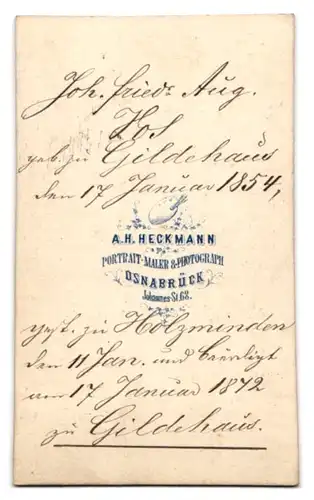 Joh. Friedr. Aug.
Hos
geb. zu Gildehaus
den 17 Januar 1854,
A.H. HECKMANN
PORTRAIT-MALER & PHOTOGRAPH
OSNABRÜCK
Johannes-St. 68.
gest. zu Holzminden
den 11 Jan. und beerdigt
am 17 Januar 1872
zu Gildehaus.